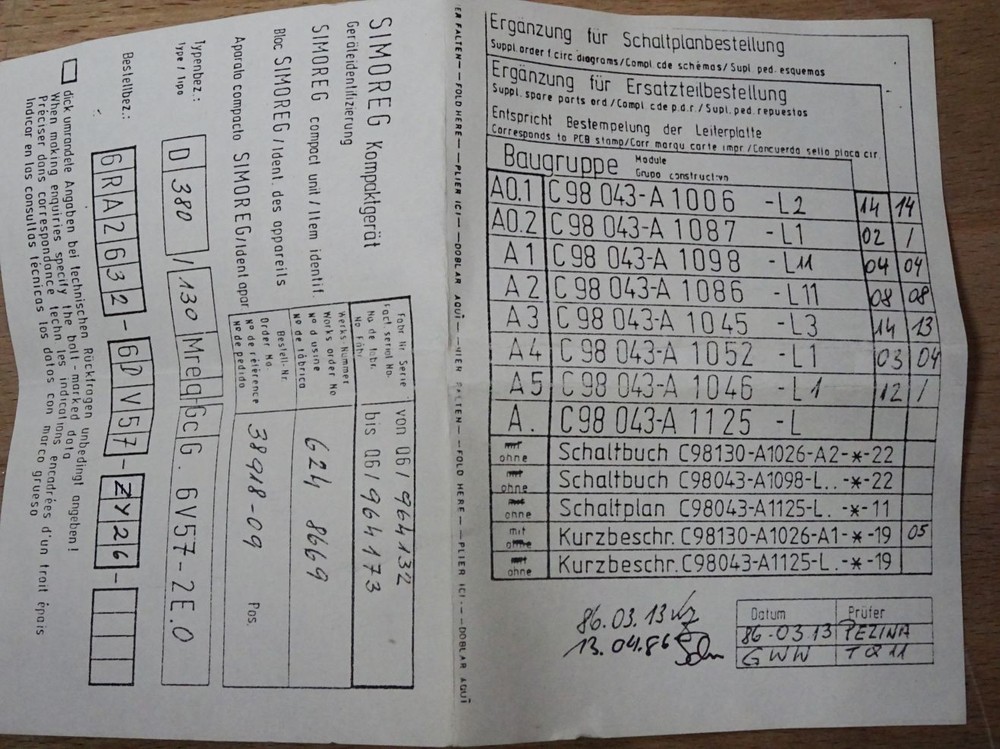 SIMOREG Kompaktgerät
Geräteidentifizierung
SIMOREG compact unit / Item identif.
Bloc SIMOREG / Ident. des appareils
Aparato compacto SIMOREG/Ident apar
Fabr Nr Serie
Fact. serial No.
No de fabr.
No Fabr.
von 061 964132
bis 061 964173
Werks-Nummer
Works order No
No d usine
No de fábrica
624 8669
Bestell-Nr.
Order No.
No de référence
No de pedido
38918-09 Pos.
Typenbez.:
Type / Tipo
D 380 / 130 Mreq-GcG. 6V57-2E.0
Bestellbez.:
6RA2632-6DV57-ZY26-
dick umrandete Angaben bei technischen Rückfragen unbedingt angeben!
When making enquiries specify the bolt-marked data
Préciser dans correspondance techn les indications encadrées d'un trait épais
Indicar en las consultas técnicas los datos con marco grueso
ER FALTEN — FOLD HERE — PLIER ICI — DOBLAR AQUÍ — HIER FALTEN — FOLD HERE — PLIER ICI — DOBLAR AQUÍ
Ergänzung für Schaltplanbestellung
Suppl.order f.circ diagrams/Compl.cde schémas/Supl. ped. esquemas
Ergänzung für Ersatzteilbestellung
Suppl. spare parts ord /Compl cde p.d.r./ Supl. ped. repuestos
Entspricht Bestempelung der Leiterplatte
Corresponds to PCB stamp/Corr marqu carte impr /Concuerda sello placa cir.
Baugruppe Module
Grupo construct.vn
A0.1 C98 043-A 1006 -L2 14 14
A0.2 C98 043-A 1087 -L1 02 /
A1 C98 043-A 1098 -L11 04 04
A2 C98 043-A 1086 -L11 08 08
A3 C98 043-A 1045 -L3 14 13
A4 C98 043-A 1052 L1 03 04
A5 C98 043-A 1046 -L1 12 /
A. C98 043-A 1125 -L
mit
ohne Schaltbuch C98130-A1026-A2-*-22
mit
ohne Schaltbuch C98043-A1098-L..-*-22
mit
ohne Schaltplan C98043-A1125-L. -*-11
mit
ohne Kurzbeschr. C98130-A1026-A1-*-19 05
mit
ohne Kurzbeschr. C98043-A1125-L.-*-19
86.03.13
13.04.86
Datum Prüfer
86-03.13 PEZINA
GWW TQ11